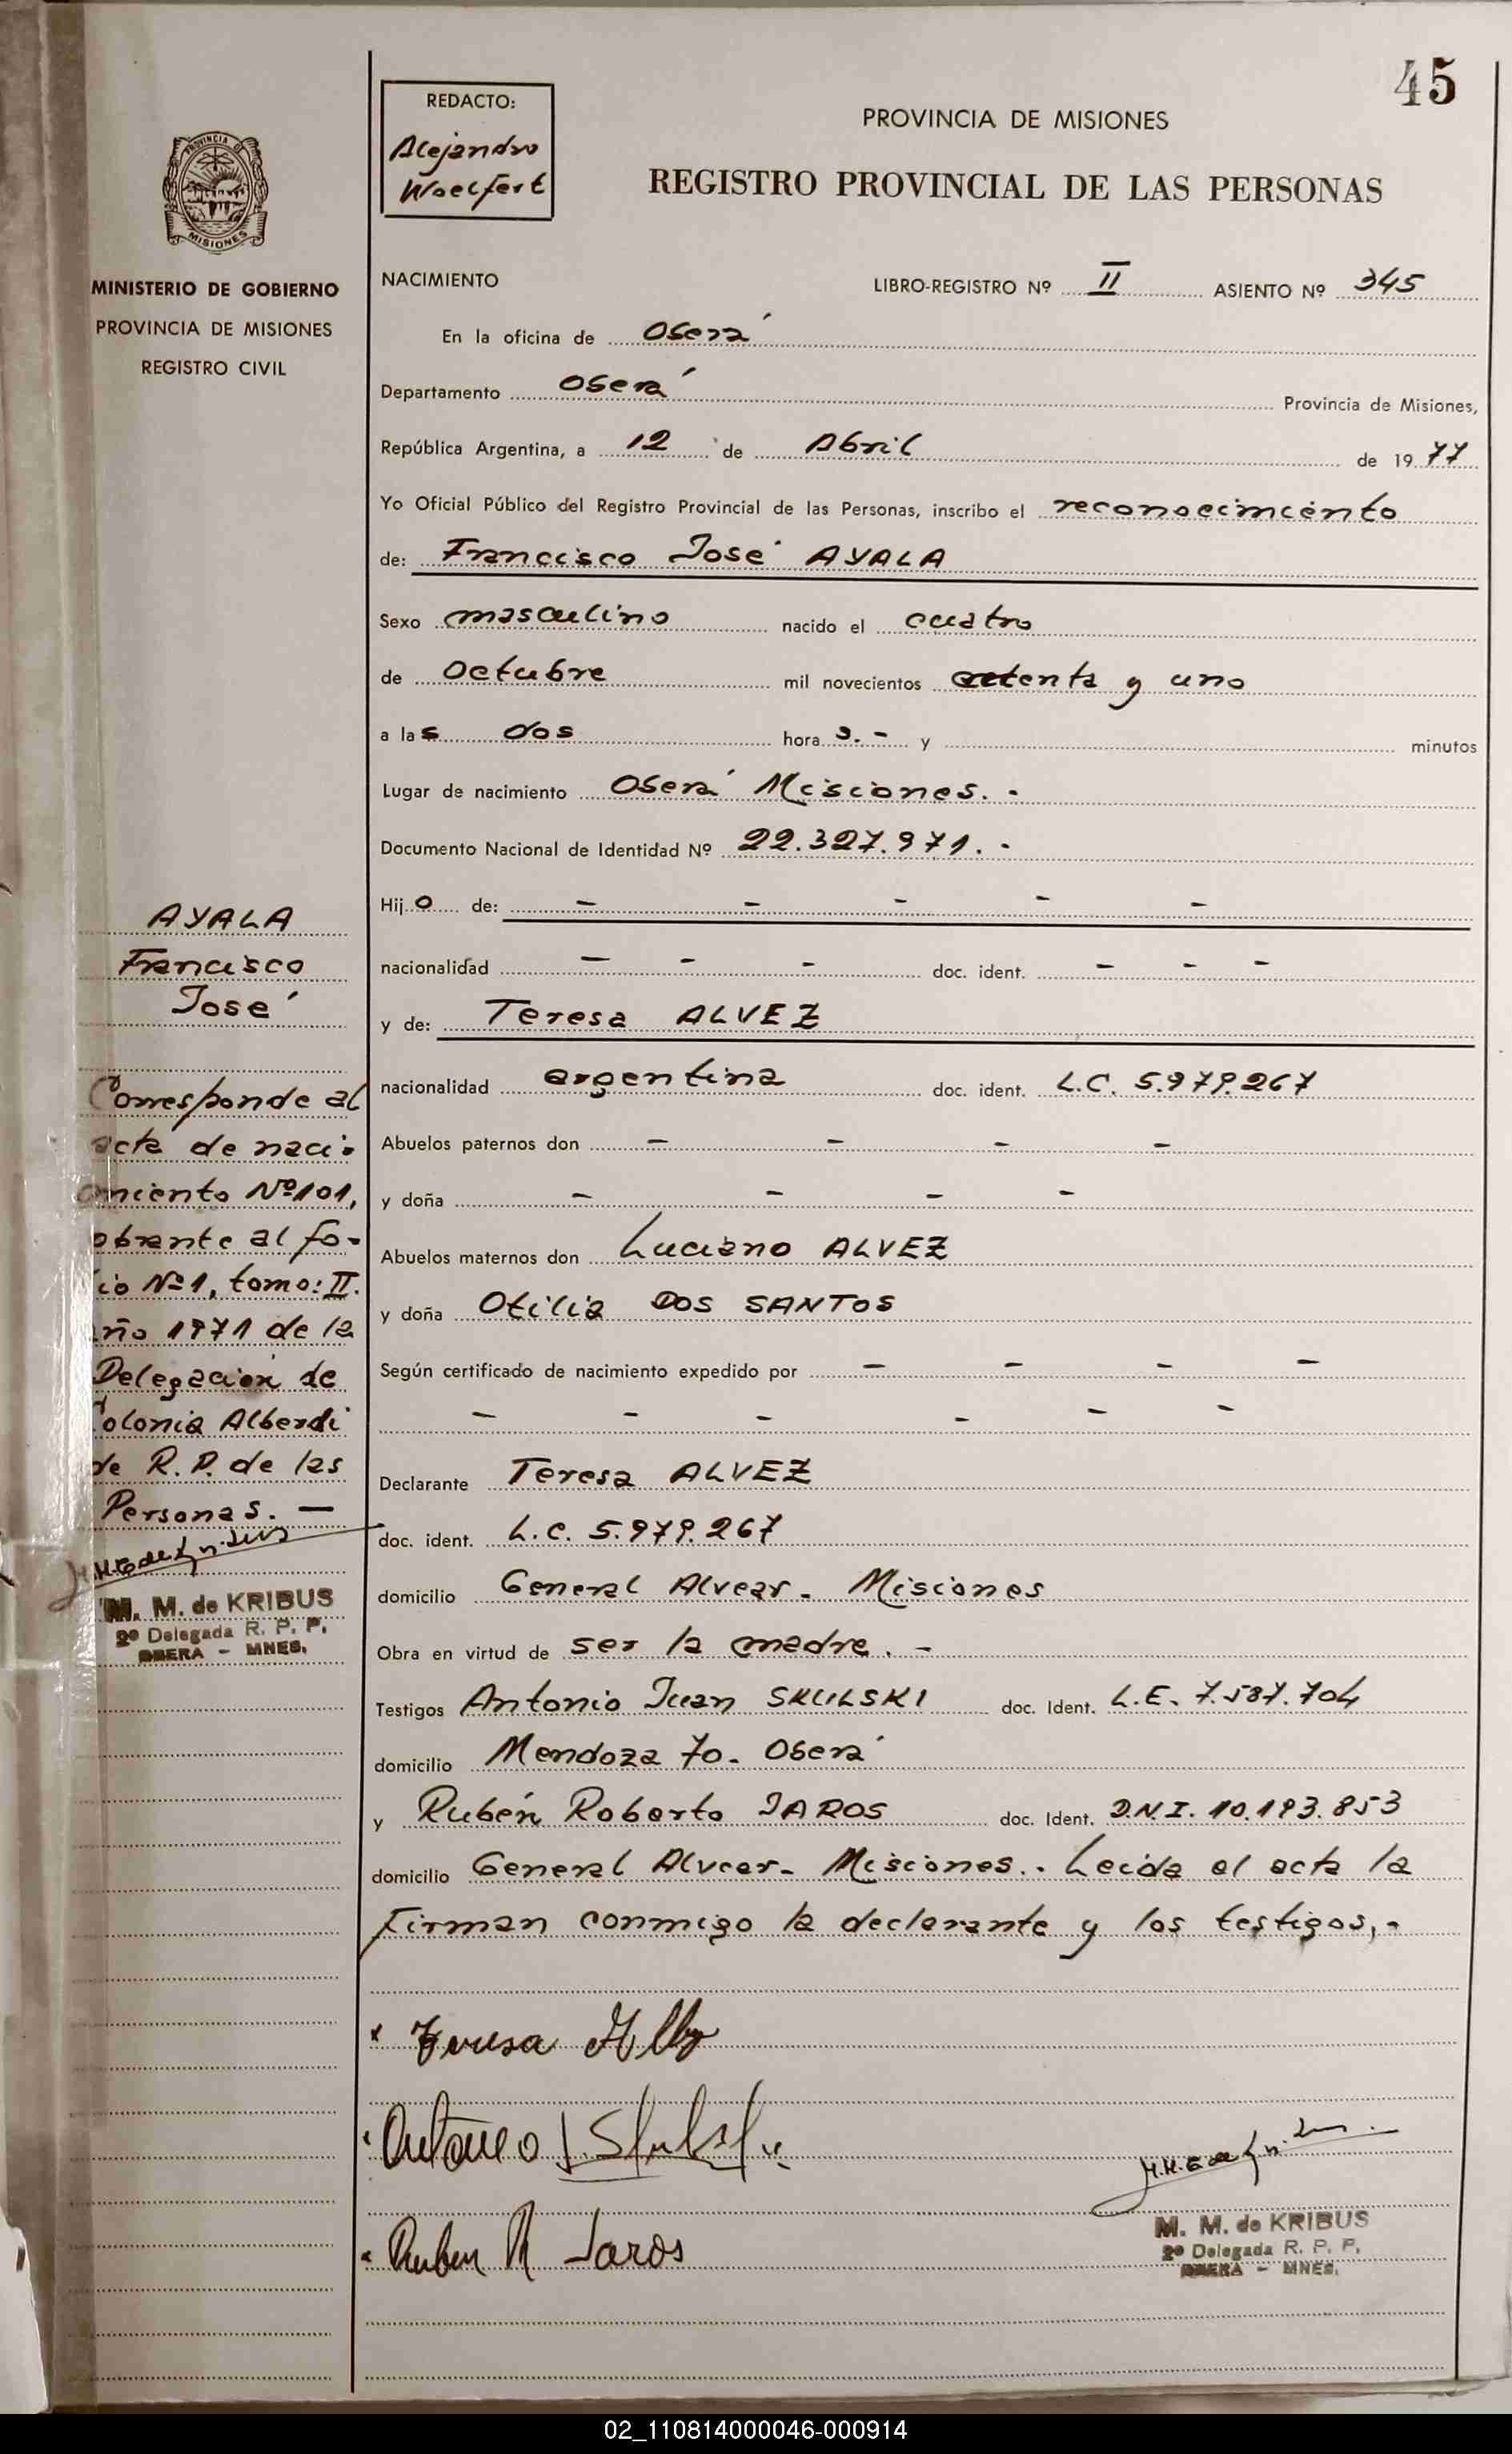 45
REDACTO:
Alejandro
Woelfert
PROVINCIA DE MISIONES
REGISTRO PROVINCIAL DE LAS PERSONAS
PROVINCIA DE
MISIONES
MINISTERIO DE GOBIERNO
PROVINCIA DE MISIONES
REGISTRO CIVIL
NACIMIENTO LIBRO-REGISTRO Nº II ASIENTO Nº 345
En la oficina de Oberá
Departamento Oberá Provincia de Misiones,
República Argentina, a 12 de Abril de 1977
Yo Oficial Público del Registro Provincial de las Personas, inscribo el reconocimiento
de: Francisco José AYALA
Sexo masculino nacido el cuatro
de Octubre mil novecientos setenta y uno
a las dos hora s.- y minutos
Lugar de nacimiento Oberá Misiones.-
Documento Nacional de Identidad Nº 22.327.971.-
Hijo de: - - - - -
nacionalidad - - - doc. ident. - - -
y de: Teresa ALVEZ
nacionalidad argentina doc. ident. L.C. 5.979.267
Abuelos paternos don - - - -
y doña - - - -
Abuelos maternos don Luciano ALVEZ
y doña Otilia DOS SANTOS
Según certificado de nacimiento expedido por - - - -
- - - - - -
Declarante Teresa ALVEZ
doc. ident. L.C. 5.979.267
domicilio General Alvear - Misiones
Obra en virtud de ser la madre.-
Testigos Antonio Juan SKULSKI doc. Ident. L.E. 7.587.704
domicilio Mendoza 70- Oberá
y Rubén Roberto JAROS doc. Ident. D.N.I. 10.193.853
domicilio General Alvear- Misiones.- Leida el acta la
Firman conmigo la declarante y los testigos,-
AYALA
Francisco
José
Corresponde al
acta de naci-
miento Nº101,
obrante al fo-
lio Nº1, tomo: II.
año 1971 de la
Delegación de
Colonia Alberdi
de R. P. de las
Personas. —
M. M. de KRIBUS
2º Delegada R. P. P.
OBERA - MNES.
x Teresa
Antonio J. Skulski
Ruben R Jaros
M. M. de KRIBUS
2º Delegada R. P. P.
OBERA - MNES.
02_110814000046-000914